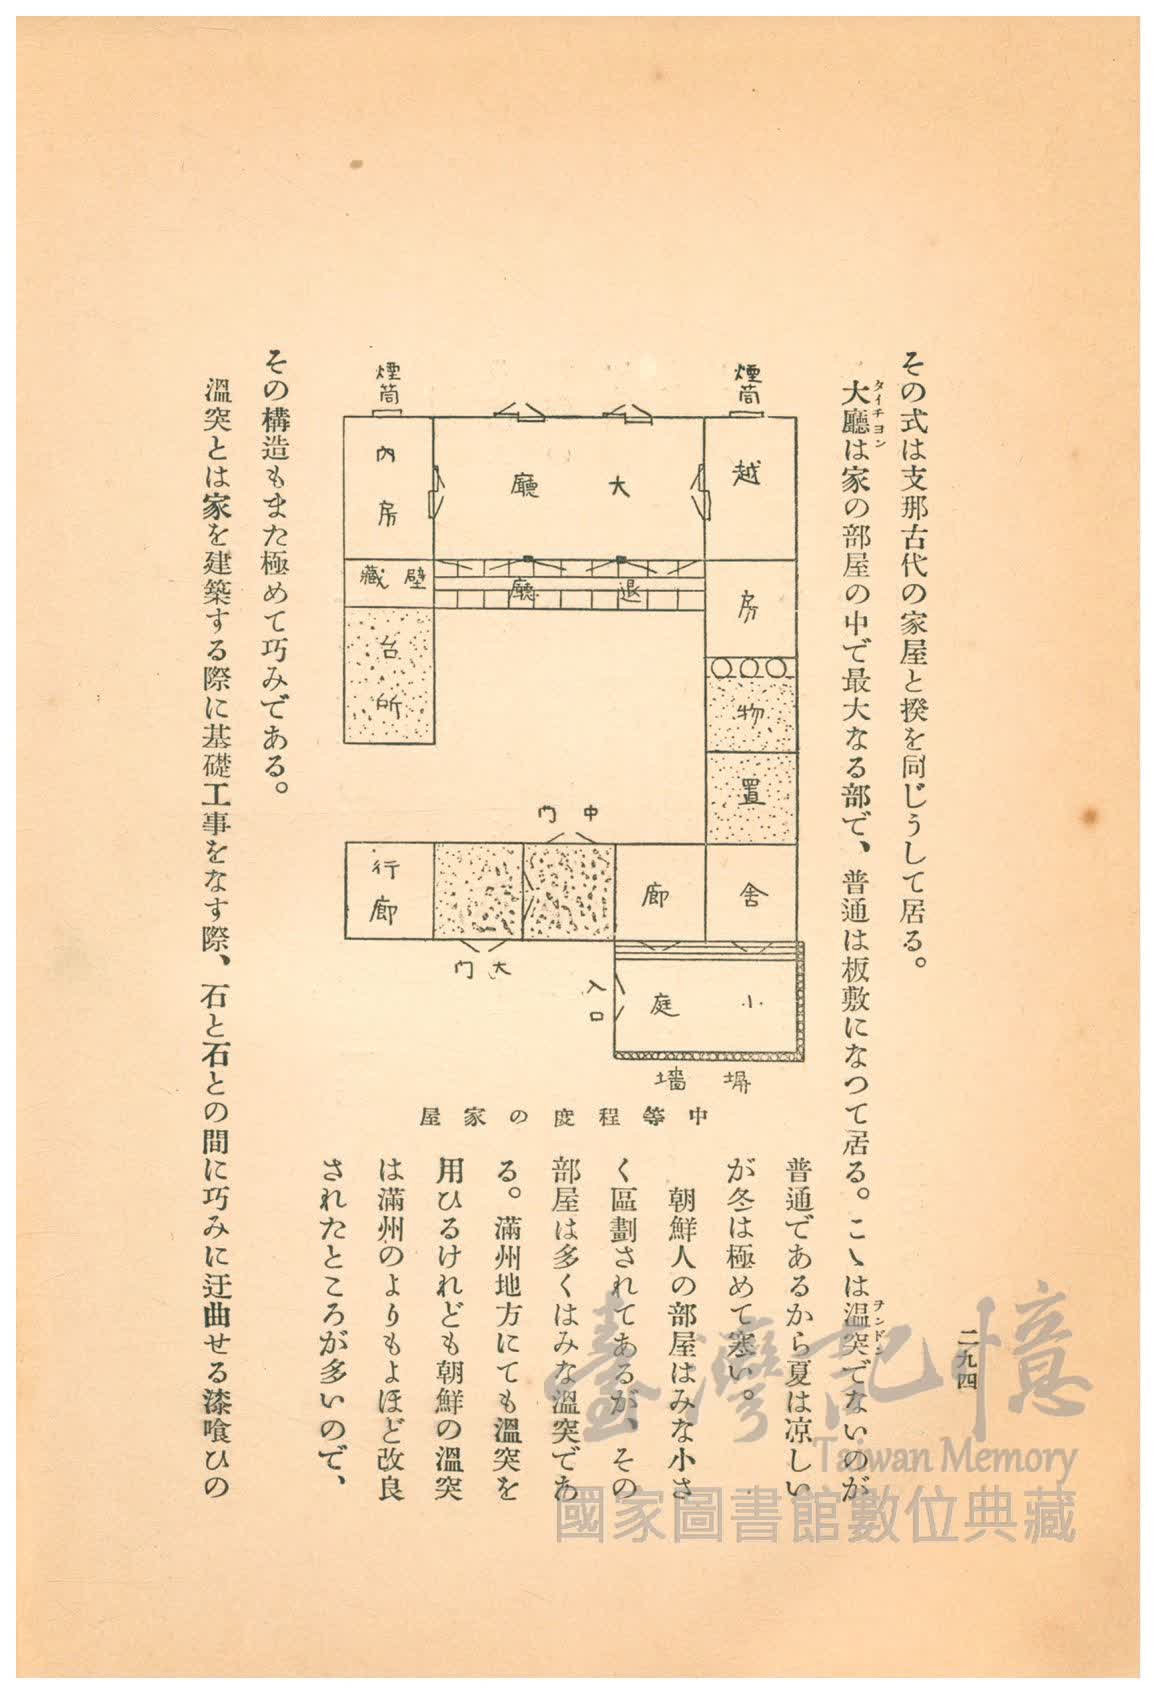 二九四
その式は支那古代の家屋と揆を同じうして居る。
大廳は家の部屋の中で最大なる部で、普通は板敷になつて居る。こゝは温突でないのが
タイチヨン
ヲンドン
普通であるから夏は凉しい
が冬は極めて寒い。
朝鮮人の部屋はみな小さ
く區劃されてあるが、その
部屋は多くはみな溫突であ
る。滿州地方にても溫突を
用ひるけれども朝鮮の溫突
は滿州のよりもよほど改良
されたところが多いので、
煙筒
煙筒
越房
大廳
內房
退廳
壁藏
台所
物置
中門
舍廊
行廊
大門
入口
小庭
塀墻
中等程度の家屋
その構造もまた極めて巧みである。
溫突とは家を建築する際に基礎工事をなす際、石と石との間に巧みに迂曲せる漆喰ひの
臺灣記憶
Taiwan Memory
國家圖書館數位典藏